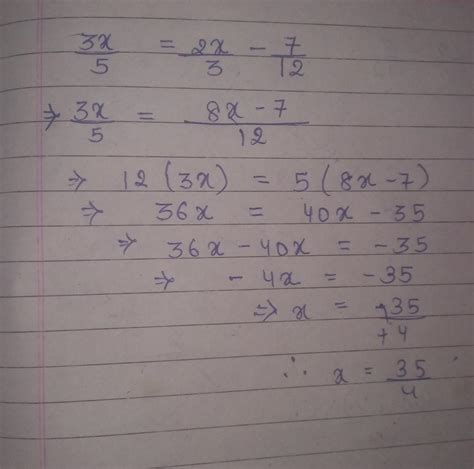 3x/5 = 2x/3 - 7/12
⇒ 3x/5 = 8x - 7/12
⇒ 12 (3x) = 5 (8x - 7)
⇒ 36x = 40x - 35
⇒ 36x - 40x = -35
⇒ - 4x = -35
⇒ x = +35/+4
∴ x = 35/4